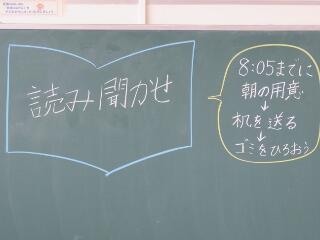 読み聞かせ
8:05までに
朝の用意
↓
机を送る
↓
ゴミをひろおう